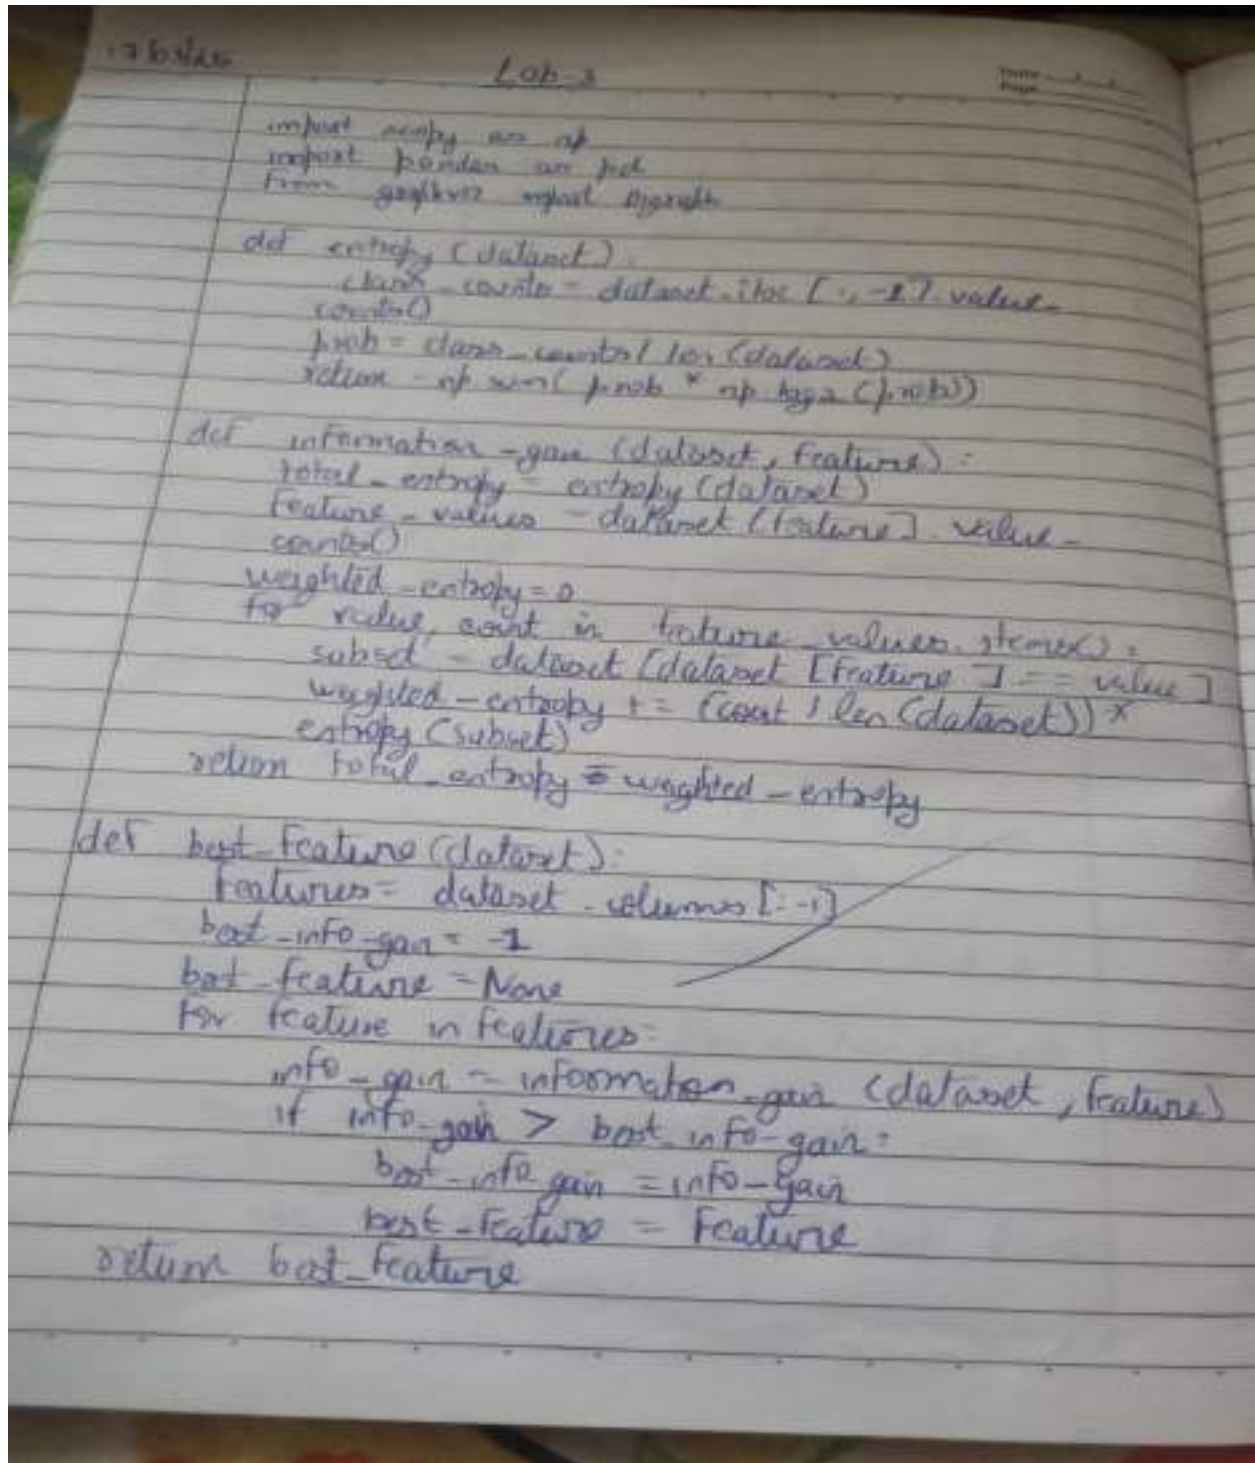 Lab-3
Date
Page
import numpy as np
import pandas as pd
From graphviz import Digraph
def entropy (dataset):
class_counts = dataset.iloc [:, -1].value_
counts()
prob = class_counts / len (dataset)
return - np.sum( prob * np.log2 (prob))
def information_gain (dataset, feature):
total_entropy = entropy (dataset)
Feature_values = dataset [feature]. value_
counts()
weighted_entropy = 0
for value, count in feature_values.items():
subset = dataset [dataset [feature] == value]
weighted_entropy += (count / len (dataset)) *
entropy (subset)
return total_entropy - weighted_entropy
def best_feature (dataset):
Features = dataset.columns [:-1]
best_info_gain = -1
best_feature = None
for feature in features:
info_gain = information_gain (dataset, feature)
if info_gain > best_info_gain:
best_info_gain = info_gain
best_feature = Feature
return best_feature